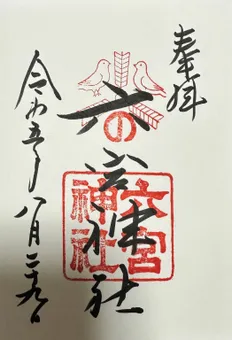 奉拝
六の宮神社
六宮
神社
令和五年八月二十九日